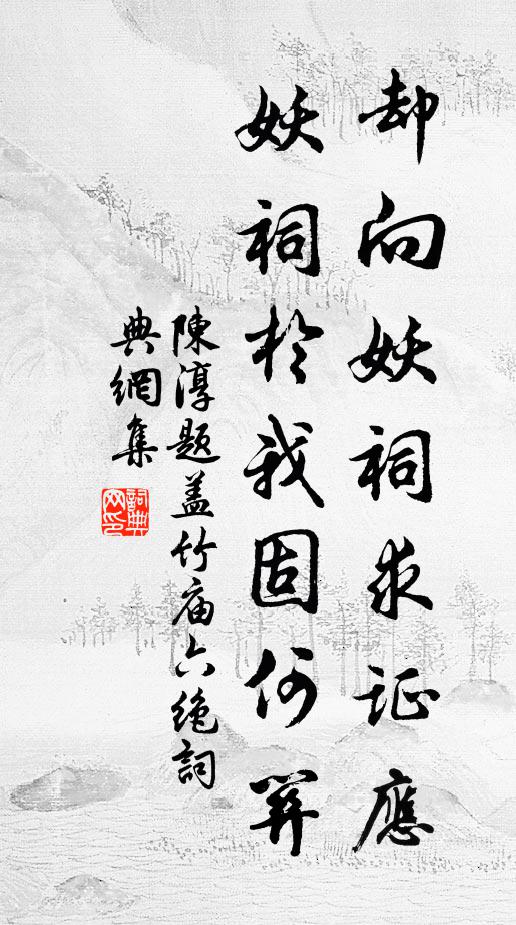 却向妖祠求証應
妖祠於我固何羿
陳淳題蓋竹庙六绝詞
典網集
詞典网印